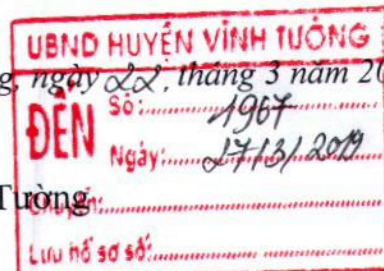 UBND HUYỆN VĨNH TƯỜNG
g, ngày 22, tháng 3 năm 20
ĐẾN
Số: 1967
Ngày: 27/3/2019
Tường
Chuyển:
Lưu hồ sơ số: